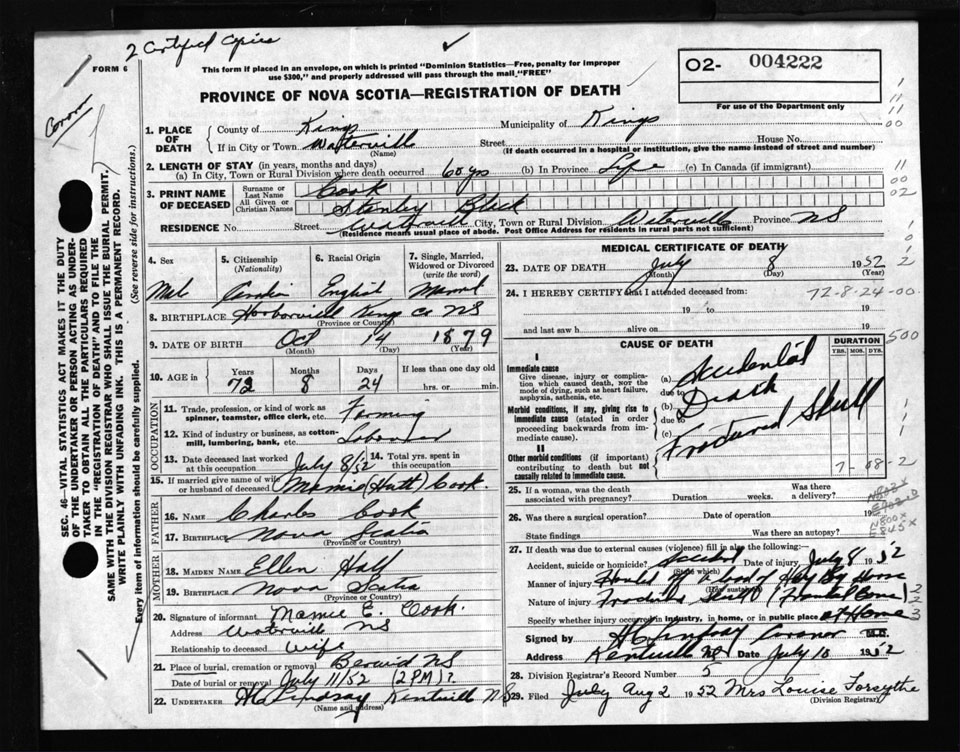 2 Certified Copies
FORM 6
This form if placed in an envelope, on which is printed "Dominion Statistics—Free, penalty for improper
use $300," and properly addressed will pass through the mail "FREE"
PROVINCE OF NOVA SCOTIA—REGISTRATION OF DEATH
O2- 004222
For use of the Department only
Coroner
SEC. 46—VITAL STATISTICS ACT MAKES IT THE DUTY
OF THE UNDERTAKER OR PERSON ACTING AS UNDER-
TAKER TO OBTAIN ALL THE PARTICULARS REQUIRED
IN THE "REGISTRATION OF DEATH" AND TO FILE THE
SAME WITH THE DIVISION REGISTRAR WHO SHALL ISSUE THE BURIAL PERMIT.
WRITE PLAINLY WITH UNFADING INK. THIS IS A PERMANENT RECORD.
(See reverse side for instructions.)
Every item of information should be carefully supplied.
1. PLACE OF DEATH
County of Kings Municipality of Kings
If in City or Town Waterville Street House No.
(Name) (If death occurred in a hospital or institution, give the name instead of street and number)
2. LENGTH OF STAY (in years, months and days)
(a) In City, Town or Rural Division where death occurred 60 yrs (b) In Province Life (c) In Canada (if immigrant)
3. PRINT NAME OF DECEASED
Surname or Last Name Cook
All Given or Christian Names Stanley
RESIDENCE No. Street Waterville City, Town or Rural Division Waterville Province NS
(Residence means usual place of abode. Post Office Address for residents in rural parts not sufficient)
4. Sex
5. Citizenship (Nationality)
6. Racial Origin
7. Single, Married, Widowed or Divorced (write the word)
Male Canadian English Married
8. BIRTHPLACE Harborville Kings Co NS
(Province or County)
9. DATE OF BIRTH Oct 14 1879
(Month) (Day) (Year)
10. AGE in Years Months Days If less than one day old
72 8 24 hrs. or min.
OCCUPATION
11. Trade, profession, or kind of work as spinner, teamster, office clerk, etc. Farming
12. Kind of industry or business, as cotton-mill, lumbering, bank, etc. Labourer
13. Date deceased last worked at this occupation July 8/52
14. Total yrs. spent in this occupation
15. If married give name of wife or husband of deceased Mamie (Hutt) Cook
FATHER
16. NAME Charles Cook
17. BIRTHPLACE Nova Scotia
(Province or Country)
MOTHER
18. MAIDEN NAME Ellen Hall
19. BIRTHPLACE Nova Scotia
(Province or Country)
20. Signature of informant Mamie E. Cook
Address Waterville NS
Relationship to deceased Wife
21. Place of burial, cremation or removal Berwick NS
Date of burial or removal July 11/52 (2 PM)
22. UNDERTAKER H C Lindsay Kentville NS
(Name and address)
MEDICAL CERTIFICATE OF DEATH
23. DATE OF DEATH July 8 1952
(Month) (Day) (Year)
24. I HEREBY CERTIFY that I attended deceased from: 72-8-24-00
19 to 19
and last saw h alive on 19
CAUSE OF DEATH
DURATION
YRS. MOS. DYS.
500
I
Immediate cause
Give disease, injury or complication which caused death, NOT the mode of dying, such as heart failure, asphyxia, asthenia, etc.
Morbid conditions, if any, giving rise to immediate cause (stated in order proceeding backwards from immediate cause).
II
Other morbid conditions (if important) contributing to death but not causally related to immediate cause.
(a) Accidental
due to
(b) Death
due to
(c) Fractured Skull
7-08-2
25. If a woman, was the death associated with pregnancy? Duration weeks. Was there a delivery?
26. Was there a surgical operation? Date of operation 19
State findings Was there an autopsy?
27. If death was due to external causes (violence) fill in also the following:—
Accident, suicide or homicide? Accident Date of injury July 8 1952
(State which)
Manner of injury Hauled off a load of Hay By Horse
(How sustained)
Nature of injury Fractured Skull (Frontal Bone)
Specify whether injury occurred in industry, in home, or in public place at Home
Signed by H C Lindsay Coroner M.D.
Address Kentville NS Date July 10 1952
28. Division Registrar's Record Number 5
29. Filed July Aug 2 1952 Mrs Louise Forsythe
(Division Registrar)